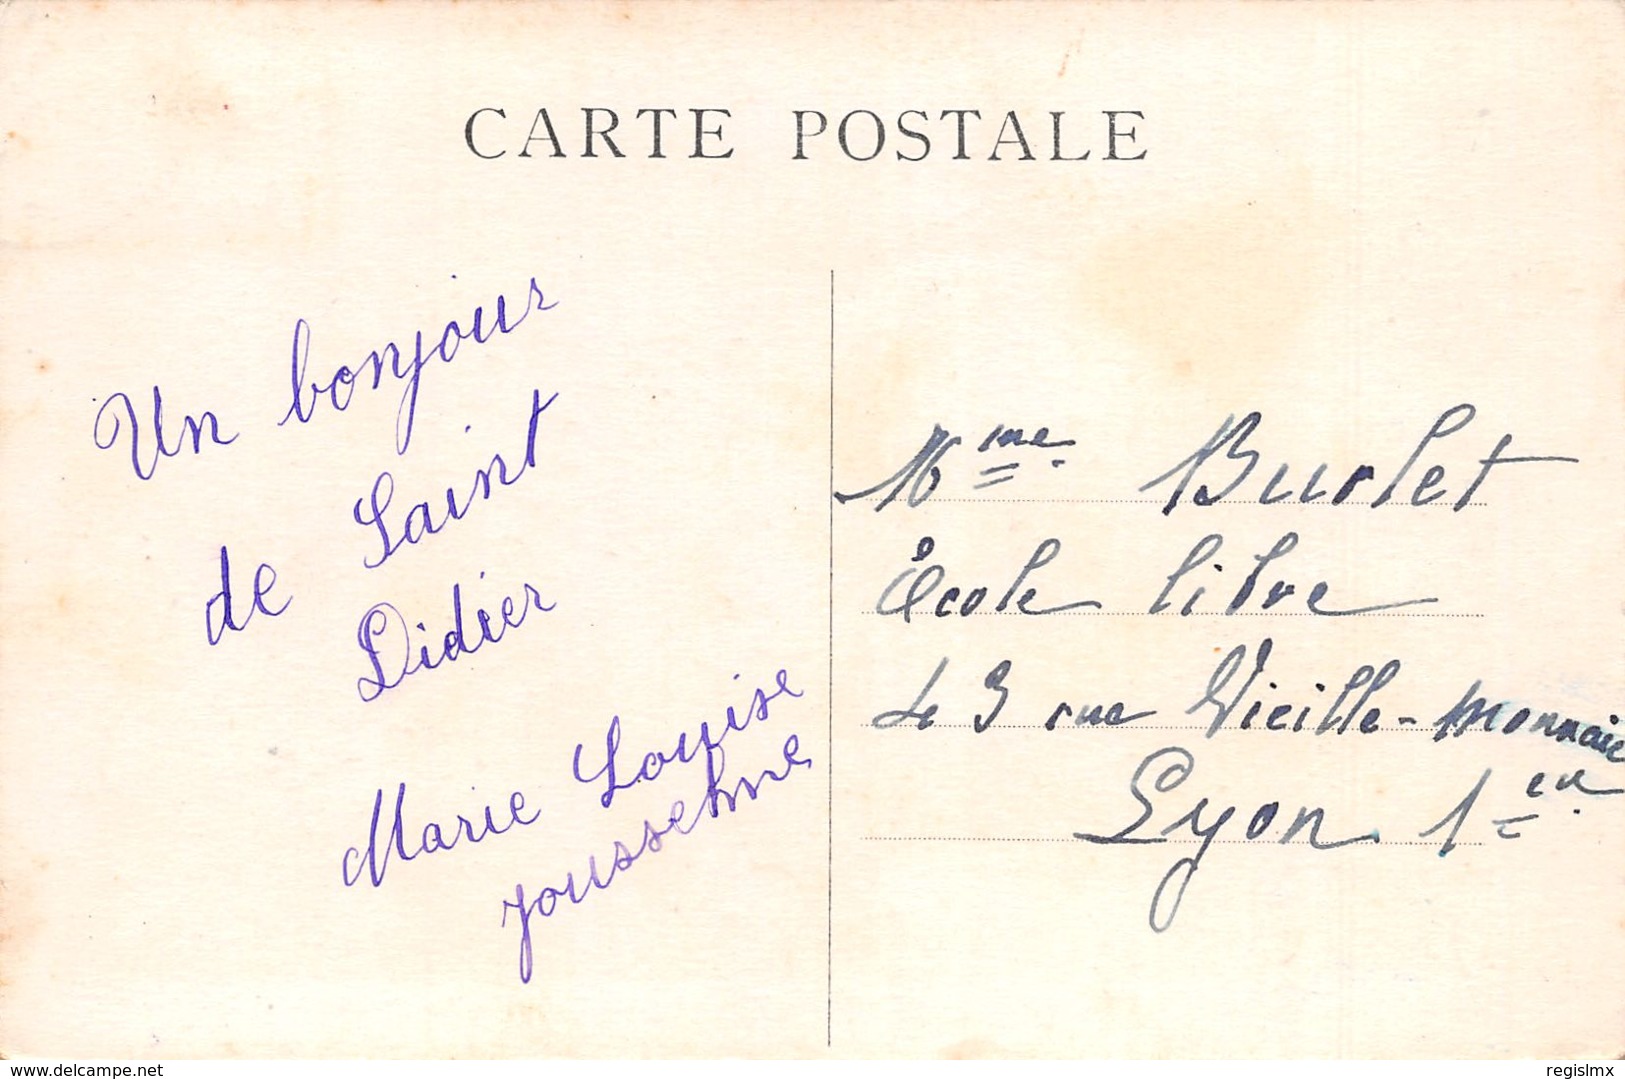 CARTE POSTALE
Un bonjour
de Saint
Didier
Marie Louise
M me. Burlet
École libre
43 rue Vieille-Monnaie
Lyon 1er.
www.delcampe.net
regislmx